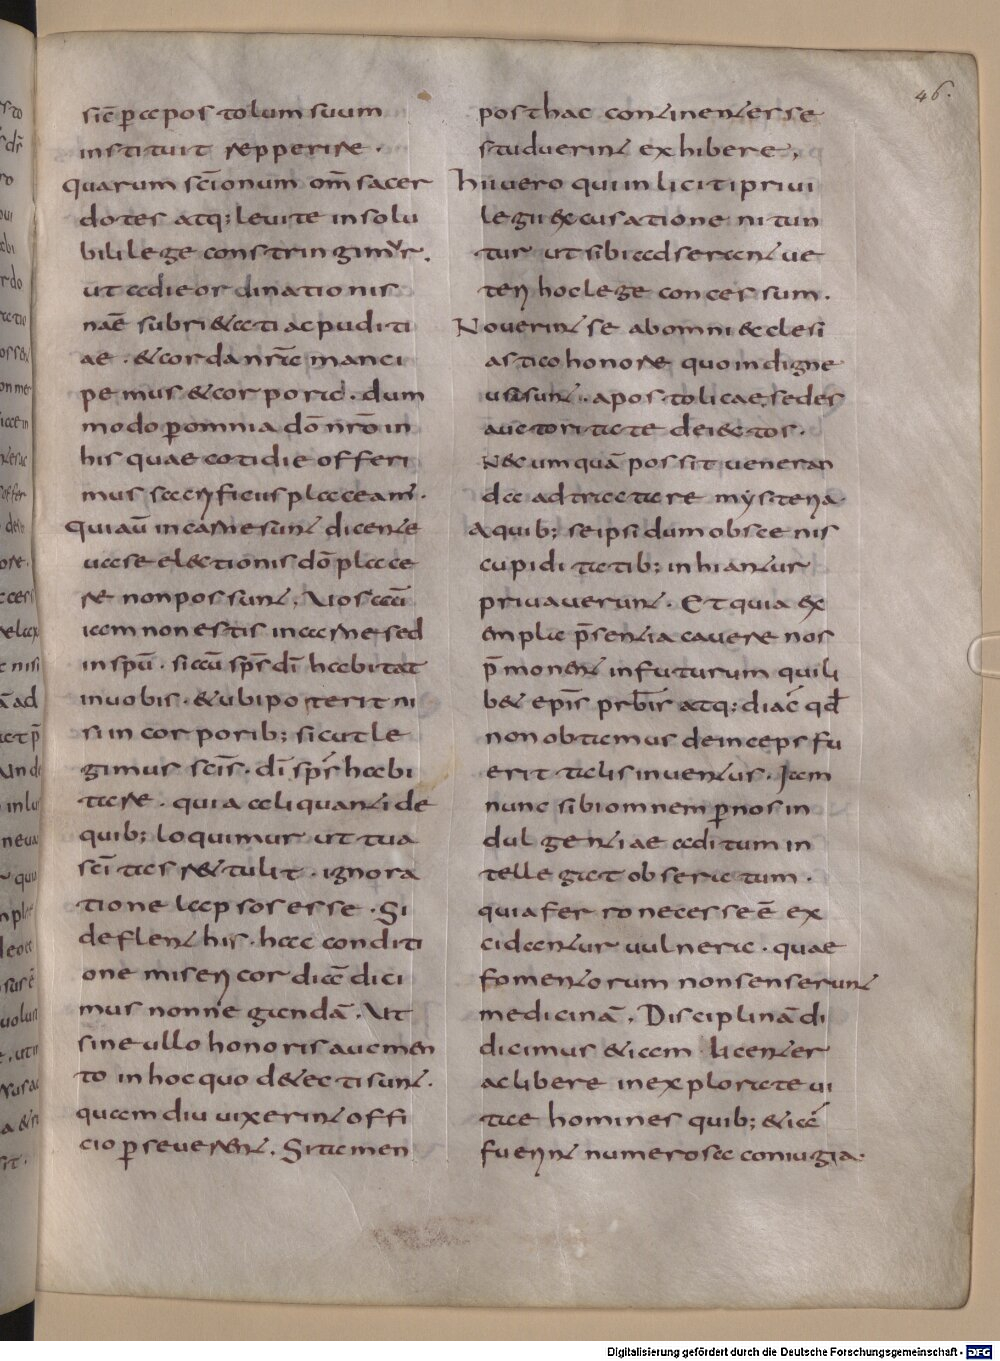 46.
sic̄ ꝑ apostolum suum
instituit repperire.
quarum sc̄ionum om̄ sacer
dotes atq; leuitae insolu
bili lege constringimur.
ut a die ordinationis
nāe subrietati ac puditi
ae. et corda nr̄a manci
pemus et corpora. dum
modo ꝑ omnia dō nr̄o in
his quae cotidie offeri
mus sacrificiis placeam̄.
Qui aū in carne sunt dicente
uase electionis dō place
re non possunt. Vos aū
iam non estis in carne sed
in spū. si aū sp̄s dī habitat
in uobis. et ubi poterit ni
si in corporib; sicut le
gimus sc̄is. dī sp̄s habi
tare. quia aliquanti de
quib; loquimur ut tua
sc̄itas retulit. ignora
tione lapsos esse. Si
deflent his. hac conditi
one misericordiā dici
mus non negandā. Ut
sine ullo honoris aucmen
to in hoc quo detecti sunt.
quamdiu uixerint offi
cio ꝑseuerent. Si tamen
posthac continentes se
studuerint exhibere,
hii uero qui inliciti priui
legii excusatione nitun
tur ut sibi adserant ue
teri hoc lege concessum.
Nouerint se ab omni ecclesi
astico honore quo indigne
usi sunt. apostolicae sedes
auctoritate deiectos.
Nec umquā possit ueneran
da adtractare mysteria.
A quib; se ipsi dum obscenis
cupiditatib; inhiantur
priuauerunt. Et quia ex
empla p̄sentia cauere nos
p̄monent in futurum quili
bet ep̄is prb̄ir atq; diac̄ qd̄
non obtamus deinceps fu
erit talis inuentus. Iam
nunc sibi omnem ꝑ nos in
dulgentiae aditum in
tellegat obseratum.
quia ferro necesse ē ex
cidantur uulnera. quae
fomentorum non senserunt
medicinā. Disciplinā di
dicimus etiam licenter
ac libere inexplorate ui
tae homines quib; etiā
fuerint numerosa coniugia.
Digitalisierung gefördert durch die Deutsche Forschungsgemeinschaft - DFG